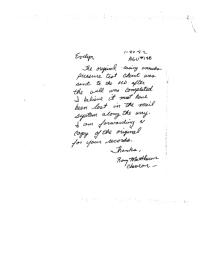 1-20-92
Evelyn,
AGU#148
The original casing
pressure test chart was
sent to the after
the well was completed
I believe it must have
been lost in the mail
system along the way.
I am forwarding a
copy of the original
for your records.
Thanks,
Ray Matthews
Chevron